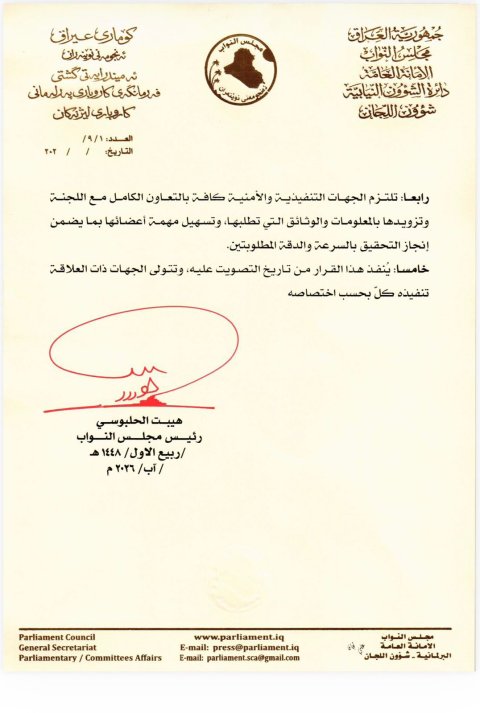 جمهورية العراق
مجلس النواب
الامانة العامة
دائرة الشؤون النيابية
شؤون اللجان
كۆماری عێراق
ئەنجومەنی نوێنەران
ئەمیندارایەتی گشتی
فەرمانگەی کاروباری پەرلەمانی
کاروباری لیژنەکان
مجلس النواب
ئەنجومەنی نوێنەران
العدد: ٩/١/
التاريخ: / / ٢٠٢
رابعا: تلتزم الجهات التنفيذية والأمنية كافة بالتعاون الكامل مع اللجنة
وتزويدها بالمعلومات والوثائق التي تطلبها، وتسهيل مهمة أعضائها بما يضمن
إنجاز التحقيق بالسرعة والدقة المطلوبتين.
خامسا: يُنفذ هذا القرار من تاريخ التصويت عليه، وتتولى الجهات ذات العلاقة
تنفيذه كلّ بحسب اختصاصه
هيبت الحلبوسي
رئيس مجلس النواب
/ربيع الاول/ ١٤٤٨ هـ
/ آب/ ٢٠٢٦ م
Parliament Council
General Secretariat
Parliamentary / Committees Affairs
www.parliament.iq
E-mail: press@parliament.iq
E-mail: parliament.sca@gmail.com
مجلس النواب
الامانة العامة
البرلمانية - شؤون اللجان